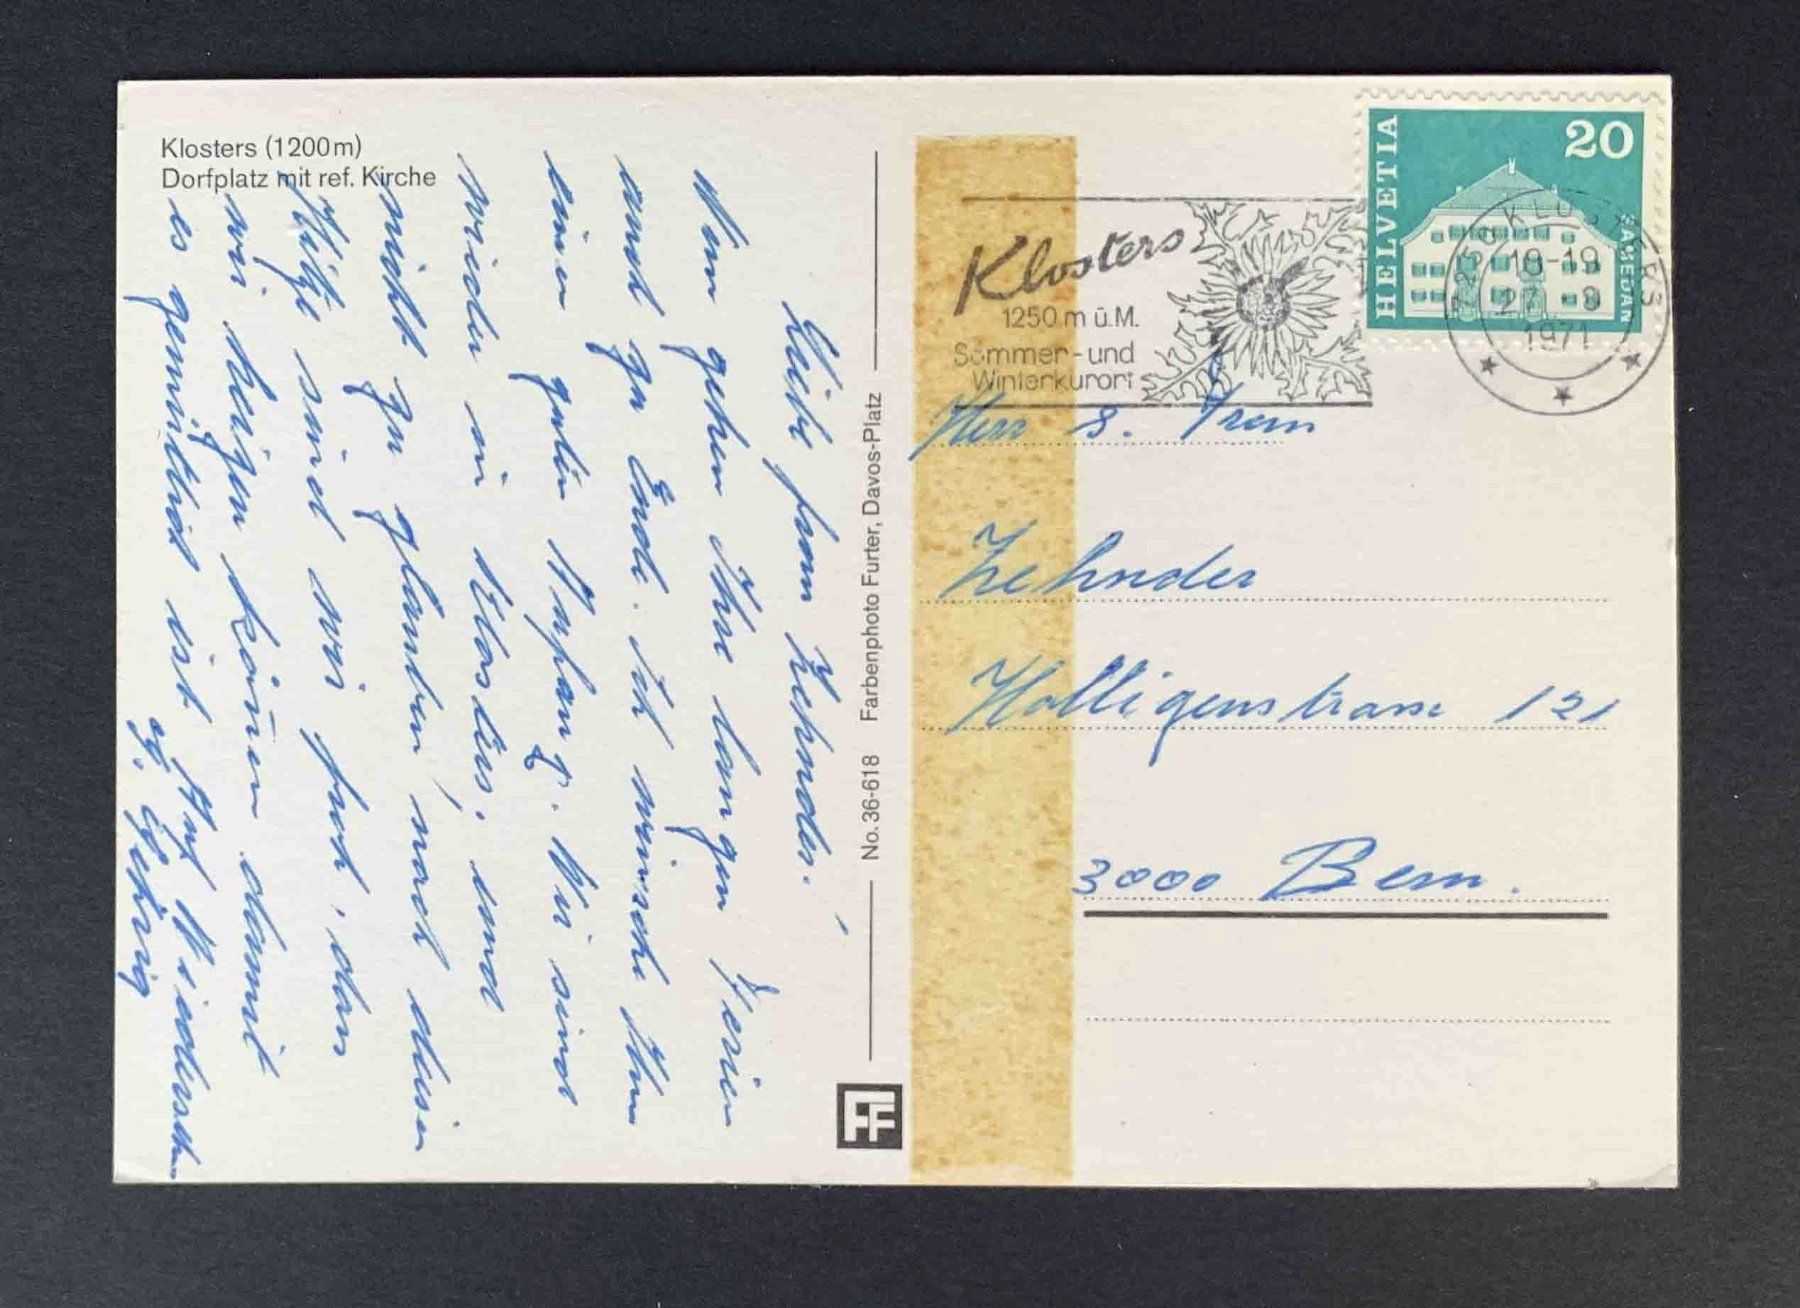 Klosters (1200m)
Dorfplatz mit ref. Kirche
Liebe Frau Zehnder!
Nun gehen Ihre langen Ferien
und zu Ende. Ich wünsche Ihnen
einen guten Anfang. Wir sind
wieder in Klosters, und
nicht zu glauben, nach dieser
Hitze sind wir froh, dass
wir heizen können damit
es gemütlich ist. Auf Wiedersehn
Gehrig
No. 36-618 Farbenphoto Furter, Davos-Platz
FF
Klosters
1250 m ü.M.
Sommer- und
Winterkurort
HELVETIA
20
SAMEDAN
7250 KLOSTERS
18-19
27. -8
1971
Herr & Frau
Zehnder
Holligenstrasse 121
3000 Bern.